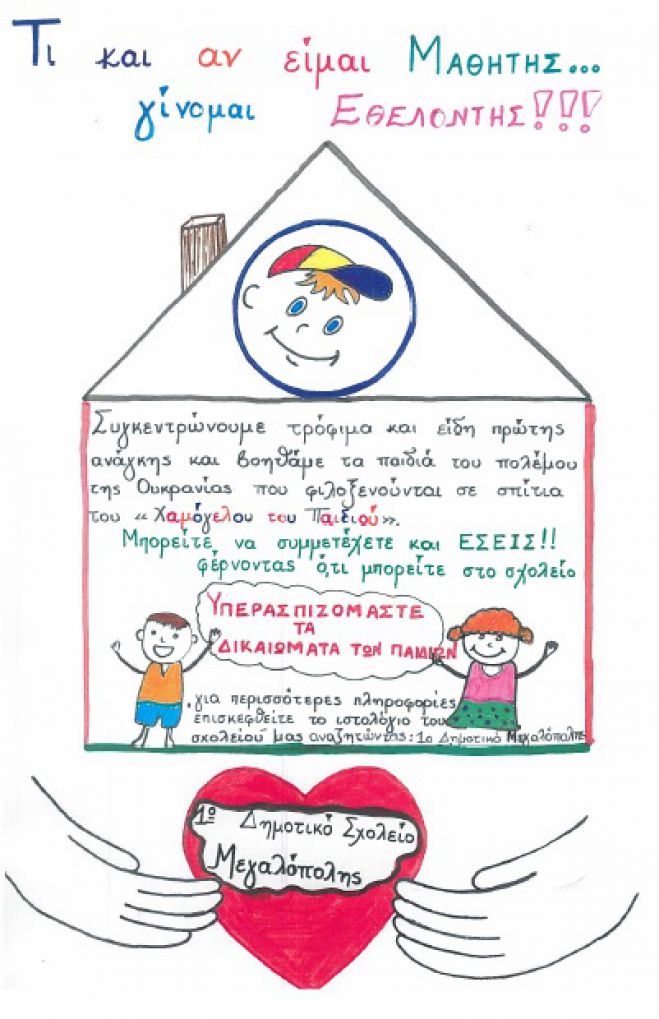 Τι και αν είμαι Μαθητης...
γίνομαι Εθελοντης!!!
Συγκεντρώνουμε τρόφιμα και είδη πρώτης
ανάγκης και βοηθάμε τα παιδιά του πολέμου
της Ουκρανίας που φιλοξενούνται σε σπίτια
του «Χαμόγελου του Παιδιού».
Μπορείτε να συμμετέχετε και ΕΣΕΙΣ!!
φέρνοντας ό,τι μπορείτε στο σχολείο
ΥΠΕΡΑΣΠΙΖΟΜΑΣΤΕ
ΤΑ
ΔΙΚΑΙΩΜΑΤΑ ΤΩΝ ΠΑΙΔΙΩΝ
για περισσότερες πληροφορίες
επισκεφθείτε το ιστολόγιο του
σχολείου μας αναζητώντας: 1ο Δημοτικό Μεγαλόπολης
1ο Δημοτικό Σχολείο
Μεγαλόπολης